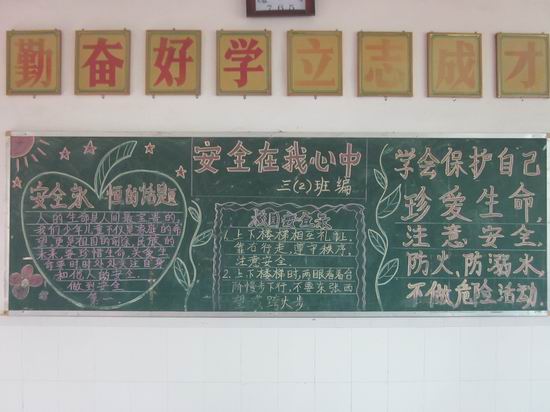 勤奋好学立志成才
安全在我心中
三(2)班编
安全永恒的话题
人的生命是人间最宝贵的,
我们少年儿童不仅是家庭的希
望,更是祖国的
未来,要珍惜生命,关爱生
和他人的安全。
做到安全
第一
1.上下楼梯相互礼让,
靠右行走,遵守秩序,
注意安全。
2.上下楼梯时,两眼看着台
阶慢步下行,不要东张西
学会保护自己
珍爱生命,
注意安全,
防火、防溺水,
不做危险活动